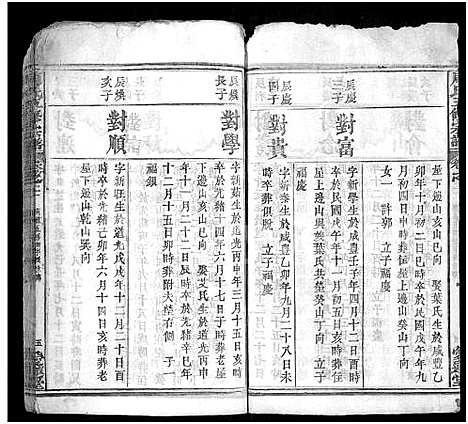 屋下邉山亥山巳向　娶葉氏生於咸豊乙
卯年十月初二日巳時卒於民國戊午年九
月初四日申時葬
女一　許郭　立子福慶
辰慶
三子
對富
字新學生於咸豊壬子年四月十二日酉時
卒於民國戊午年十一月初五日亥時葬老
屋上邉山與葉氏共癸山丁向　立子
福慶
辰慶
四子
對貴
字新泰生於咸豊乙卯年九月二十八日未
時卒葬俱脫　立子福慶
辰燦
長子
對學
字新茹生於道光丙申年三月十五日亥時
卒於光緒十四年六月十七日子時葬老屋
下邉山亥山巳向　娶艾氏生於道光丙申
年十一月二十二日辰時卒於光緒辛巳年
十二月十五日卯時葬附夫墳右側　子一
福銀
辰燦
次子
對順
字新旺生於道光戊戌年十二月二十日亥
時卒於光緒己卯年六月十四日亥時葬老
屋下邉山乾山巽向
五